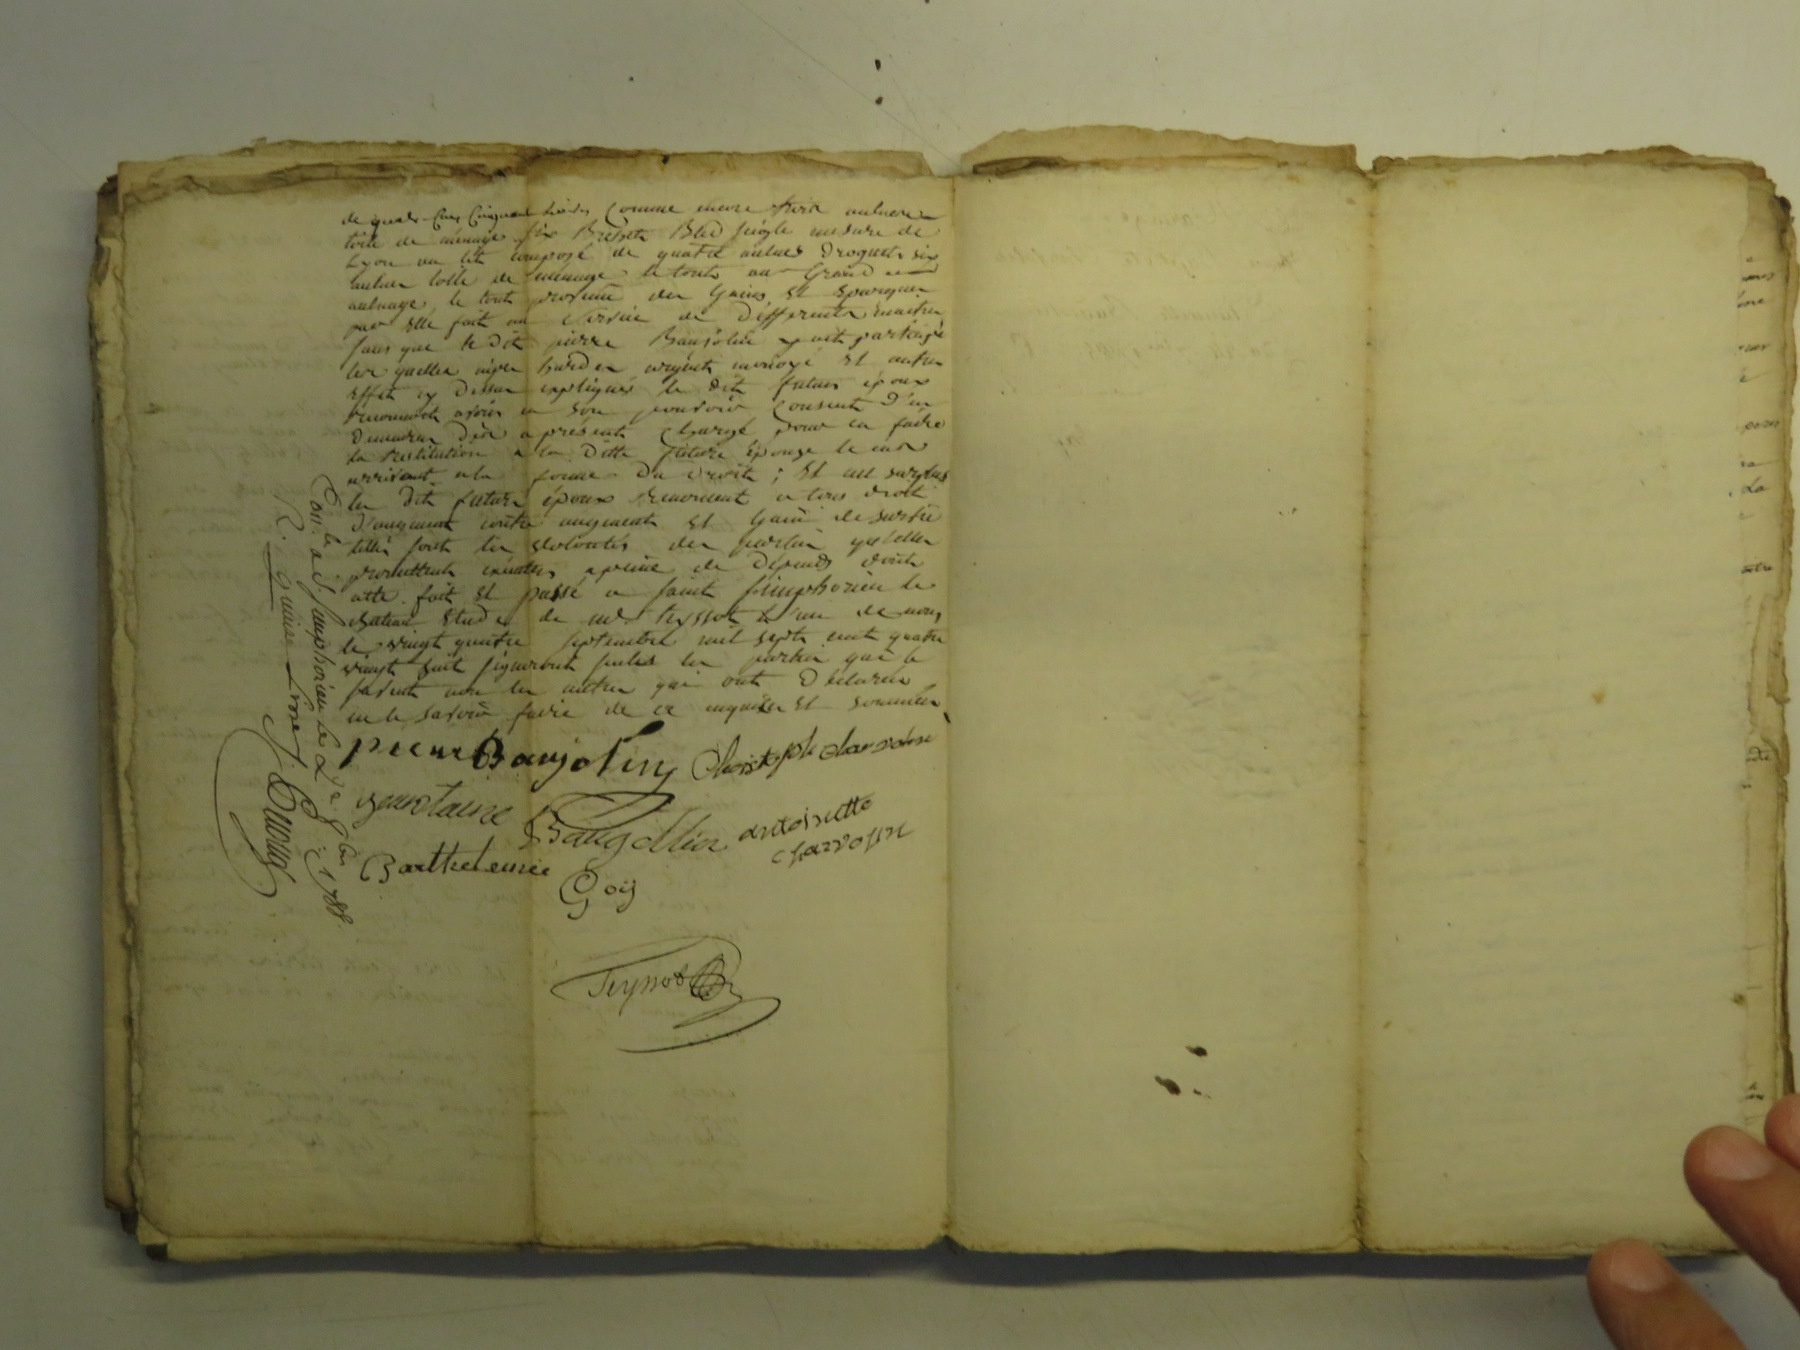 de quatre Cens Cinquante livres Comme encore treize aulnes
toile de ménage six Bichets Bled seigle mesure de
Lyon un lit composé de quatre aulnes Droguet six
aulnes toile de ménage le tout au Grand
aulnage, le tout provenu des Gains Et Epargnes
par Elle fait au service de differents maitres,
sans que le dit pierre Baujolin y ait participé
les quelles nipes hardes argent monoyé Et autres
Effets cy dessus expliqués le dit futur époux
reconnoit avoir en son pouvoir Consent d'en
Demeurer Dès a présent Chargé pour en faire
la restitution a la Ditte future épouse le cas
arrivant a la forme Du Droit ; Et au surplus
les dits futurs époux renoncent a tous droits
D'augment contre augment Et Gain de survie
telles sont les volontés des parties qu'elles
promettent exécuter a peine de Dépends dont
acte fait Et passé a saint simphorien le
chateau Etude de me Teyssot L'un de nous
le vingt quatre septembre mil sept cent quatre
vingt huit signeront seules les parties qui le
savent non les autres qui ont Déclarées
ne le savoir faire de ce enquises Et sommées
pierre Baujolin Christophe charvolin
Baugollin antoinette
charvolin
Barthelemie
Goy
Teyssot
Con.lé a St. simphorien le
1788.
R. quinze livres